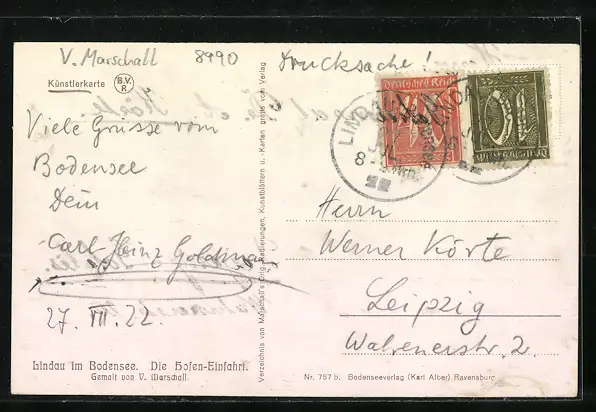 V. Marschall 8990
Drucksache!
Künstlerkarte
B.V.
R.
Deutsches Reich
LINDAU
8
Viele Grüsse vom
Bodensee
Dein
Carl-Heinz Goldmann
27. VII. 22.
Herrn
Werner Körte
Leipzig
Lindau im Bodensee. Die Hofen-Einfahrt.
Gemalt von V. Marschall.
Verzeichnis von Marschall's Orig.-Radierungen, Kunstblättern u. -Karten gratis vom Verlag
Nr. 757 b. Bodenseeverlag (Karl Alber) Ravensburg